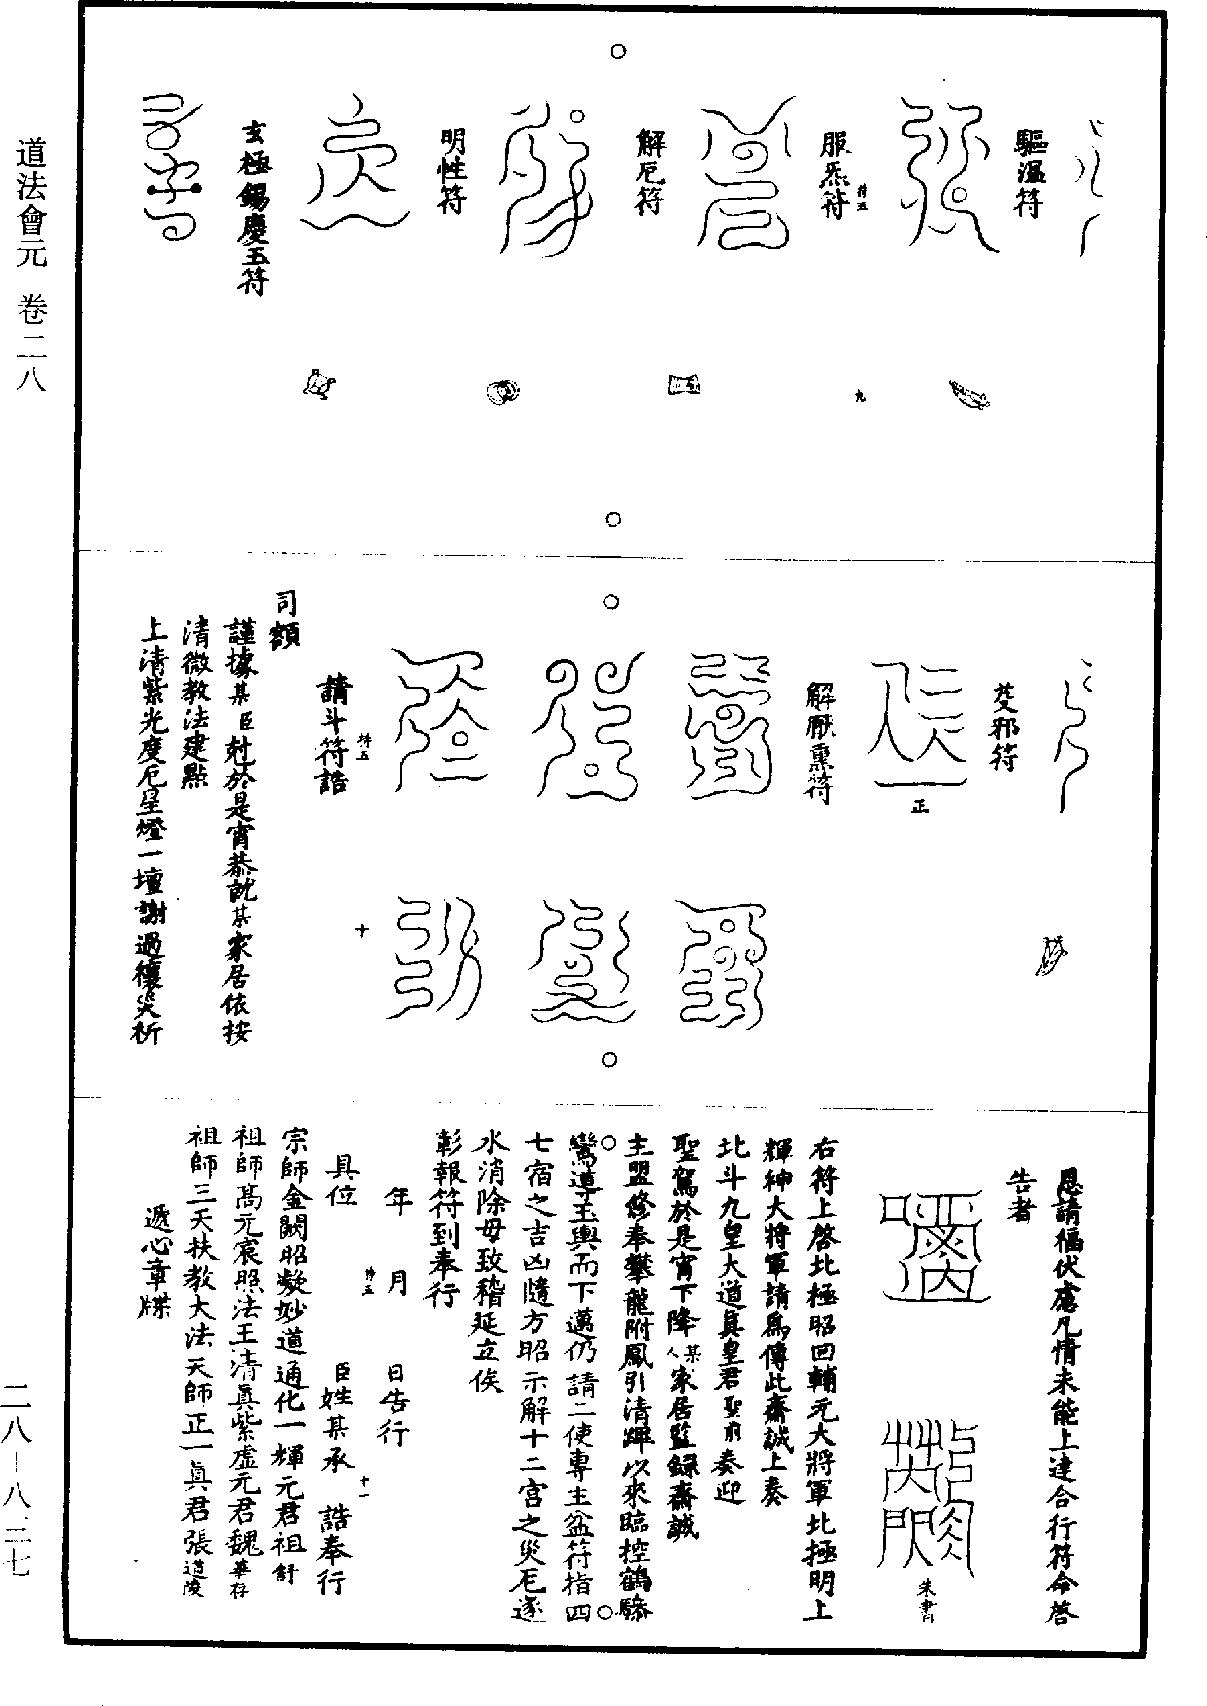 道法會元 卷二八
驅瘟符
服炁符
符五
九
解厄符
明性符
玄極錫慶玉符
芟邪符
正
解厭熏符
請斗符誥
符五
十
司額
謹據某臣剋於是宵恭詑某家居依按
清微教法建點
上清紫光度厄星燈一壇謝過禳災祈
恩請福伏慮凡情未能上達合行符命啓
告者
朱書
右符上啓北極昭回輔元大將軍北極明上
輝神大將軍請爲傳此齋誠上奏
北斗九皇大道真皇君聖前奏迎
聖駕於是宵下降某人家居監錄齋誠
主盟修奉攀龍附鳳引清蹕以來臨控鶴驂
鸞導玉輿而下邁仍請二使專主盆符指四
七宿之吉凶隨方昭示解十二宮之災厄逐
水消除毋致稽延立俟
彰報符到奉行
年 月 日告行
符五
十一
具位 臣姓某承 誥奉行
宗師金闕昭凝妙道通化一輝元君祖舒
祖師高元宸照法王清真紫虛元君魏華存
祖師三天扶教大法天師正一真君張道陵
遞心章牒
二八－八二七